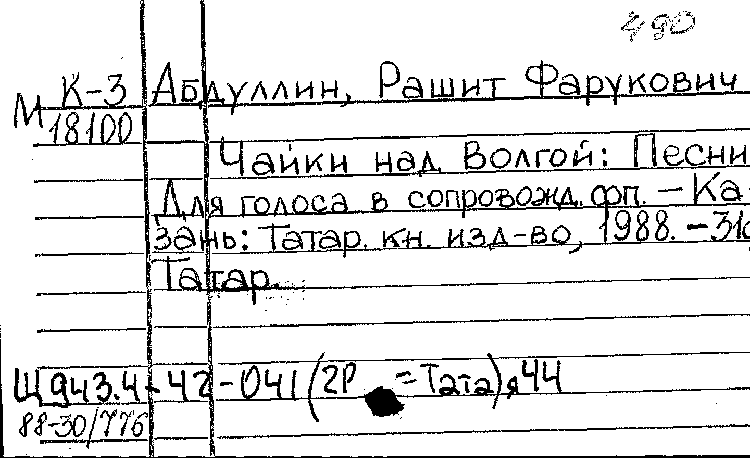 490
К-3 Абдуллин, Рашит Фарукович
М 18100
Чайки над Волгой: Песни
Для голоса в сопровожд. фп. – Ка-
зань: Татар. кн. изд-во, 1988. – 31с
Татар.
Щ943.4-42-041(2Р =Тата)я44
88-30/776